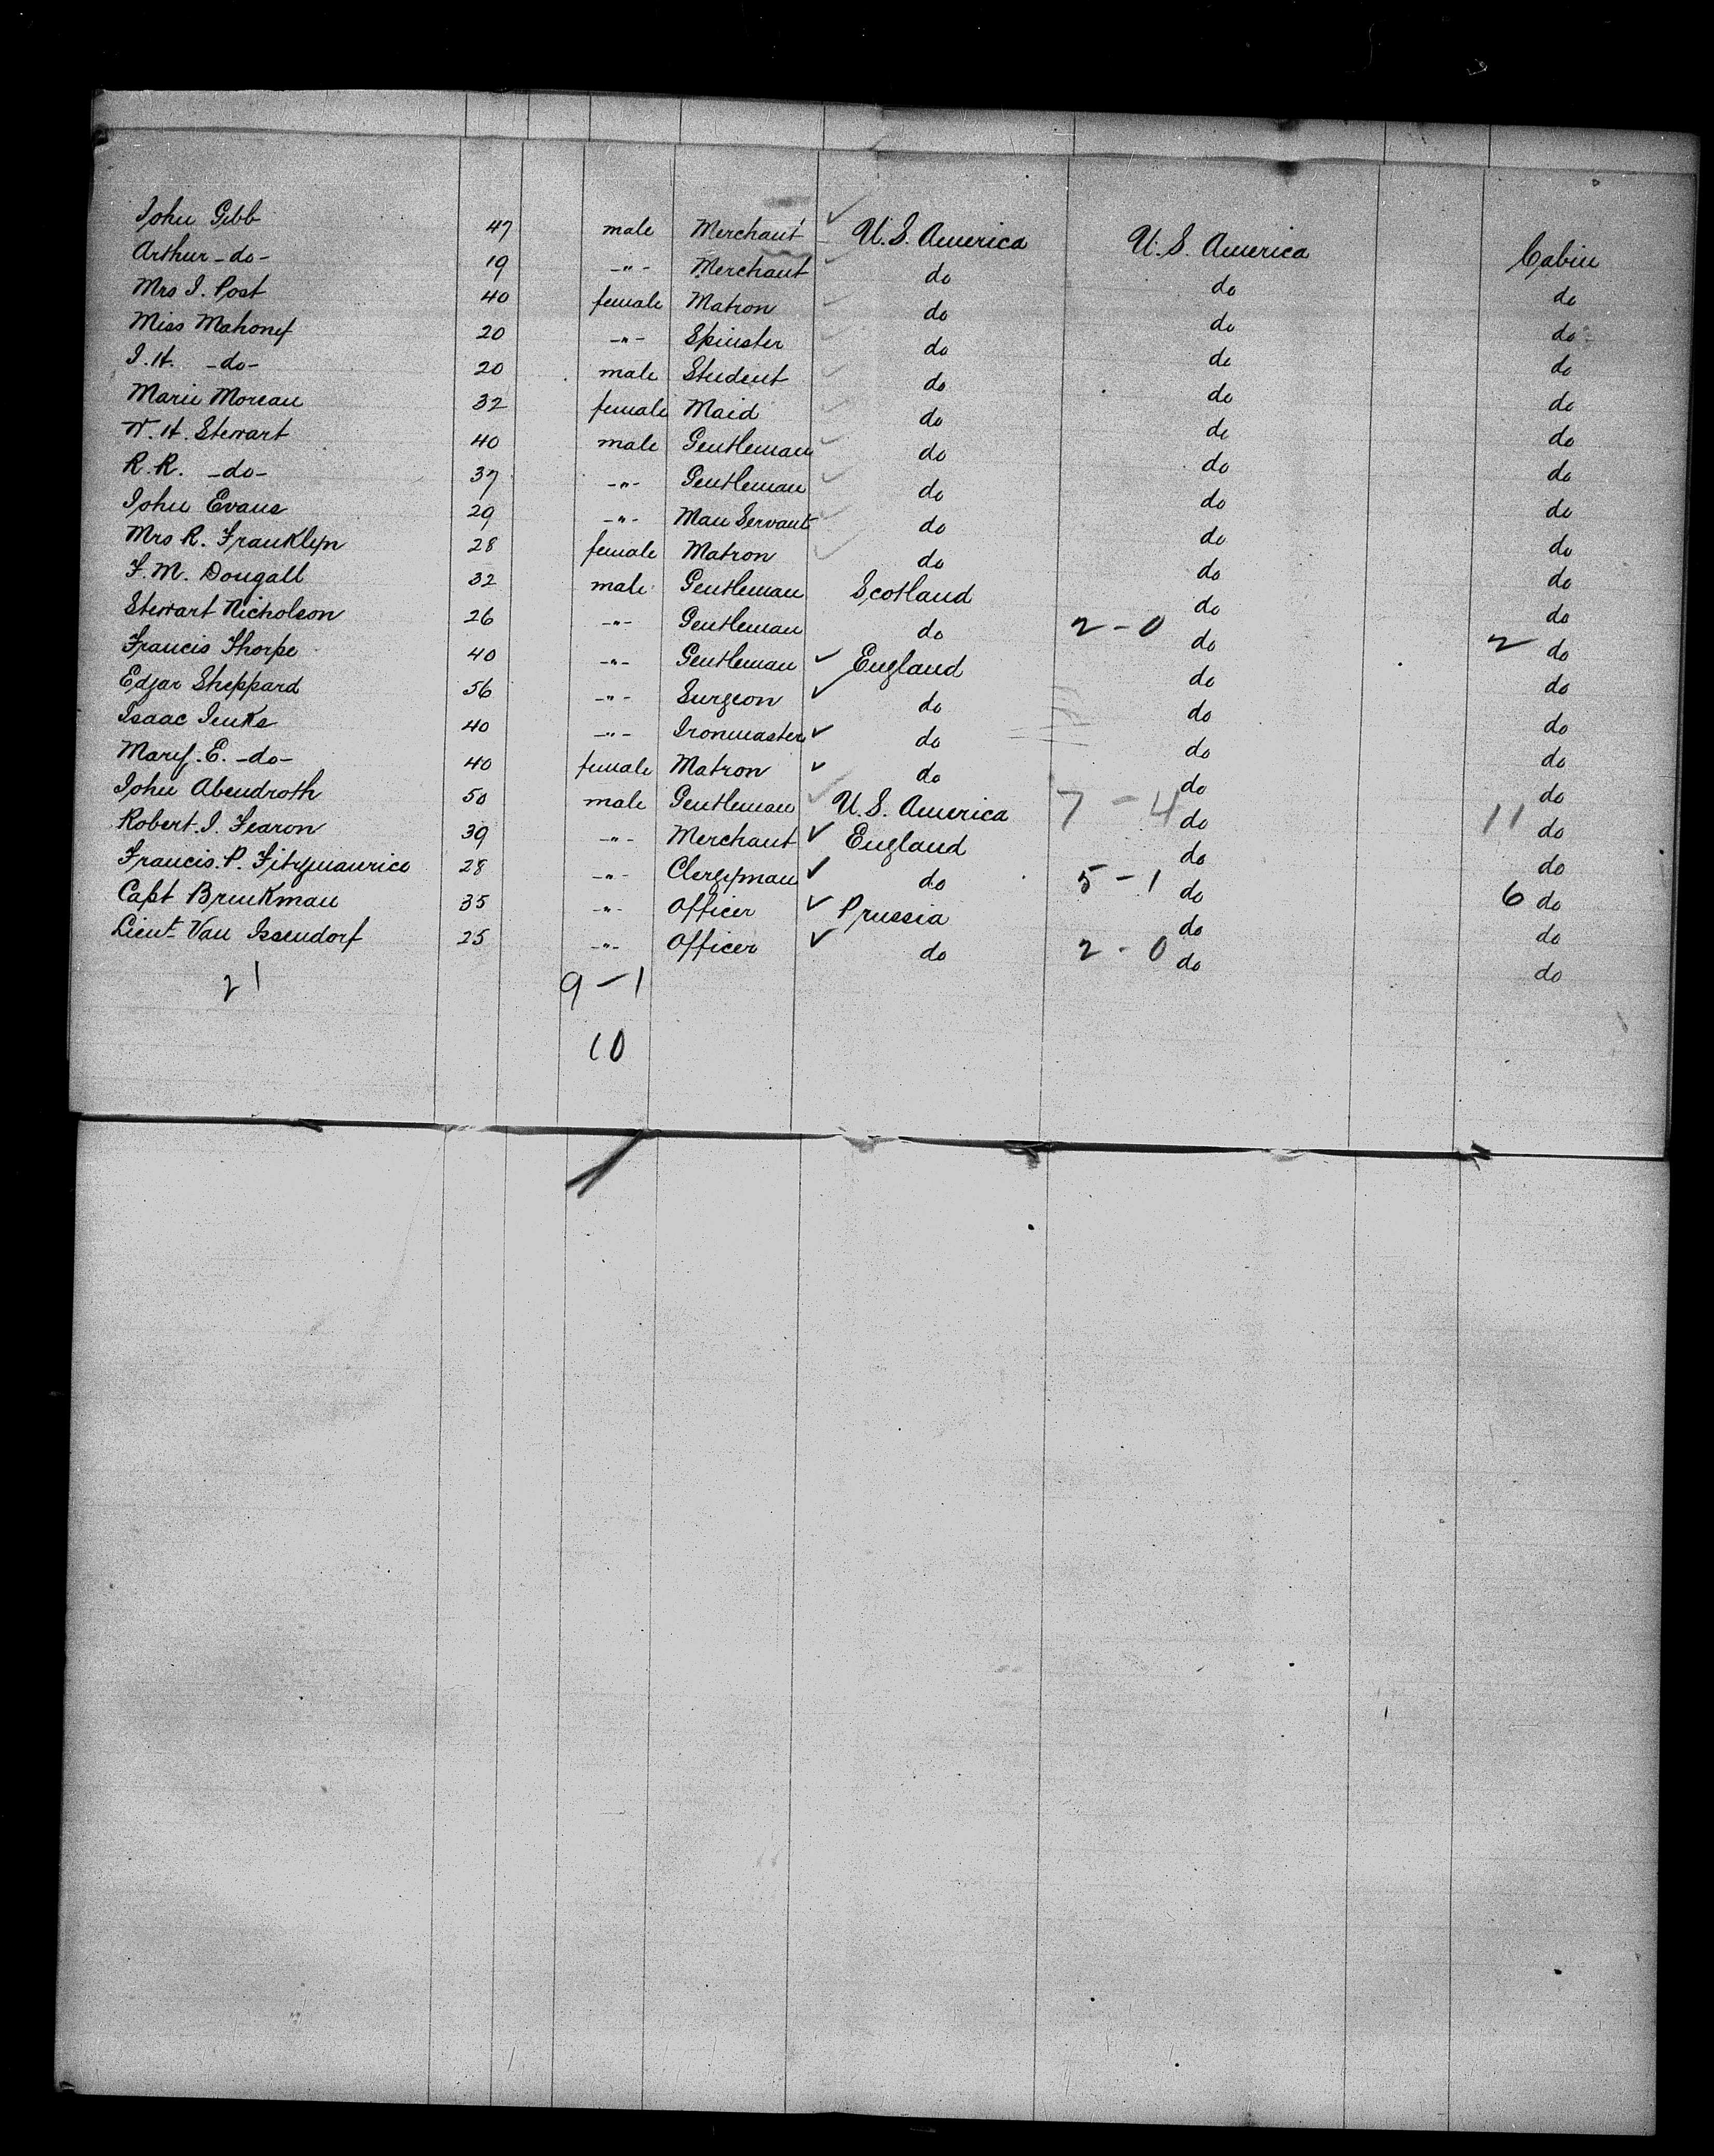 John Gibb 47 male Merchant U.S. America U.S. America Cabin
Arthur -do- 19 -"- Merchant do do do
Mrs J. Post 40 female Matron do do do
Miss Mahony 20 -"- Spinster do do do
J.H. -do- 20 male Student do do do
Marie Moreau 32 female Maid do do do
W.H. Stewart 40 male Gentleman do do do
R.R. -do- 37 -"- Gentleman do do do
John Evans 29 -"- Man Servant do do do
Mrs R. Franklyn 28 female Matron do do do
F.M. Dougall 32 male Gentleman Scotland do do
Stewart Nicholson 26 -"- Gentleman do 2-0 do 2 do
Francis Thorpe 40 -"- Gentleman England do do
Edgar Sheppard 56 -"- Surgeon do do do
Isaac Jenks 40 -"- Ironmaster do do do
Mary. E. -do- 40 female Matron do do do
John Abendroth 50 male Gentleman U.S. America 7-4 do 11 do
Robert. J. Fearon 39 -"- Merchant England do do
Francis. P. Fitzmaurice 28 -"- Clergyman do 5-1 do 6 do
Capt Brinkman 35 -"- Officer Prussia do do
Lieut Van Issendorf 25 -"- Officer do 2-0 do do
21 9-1
10